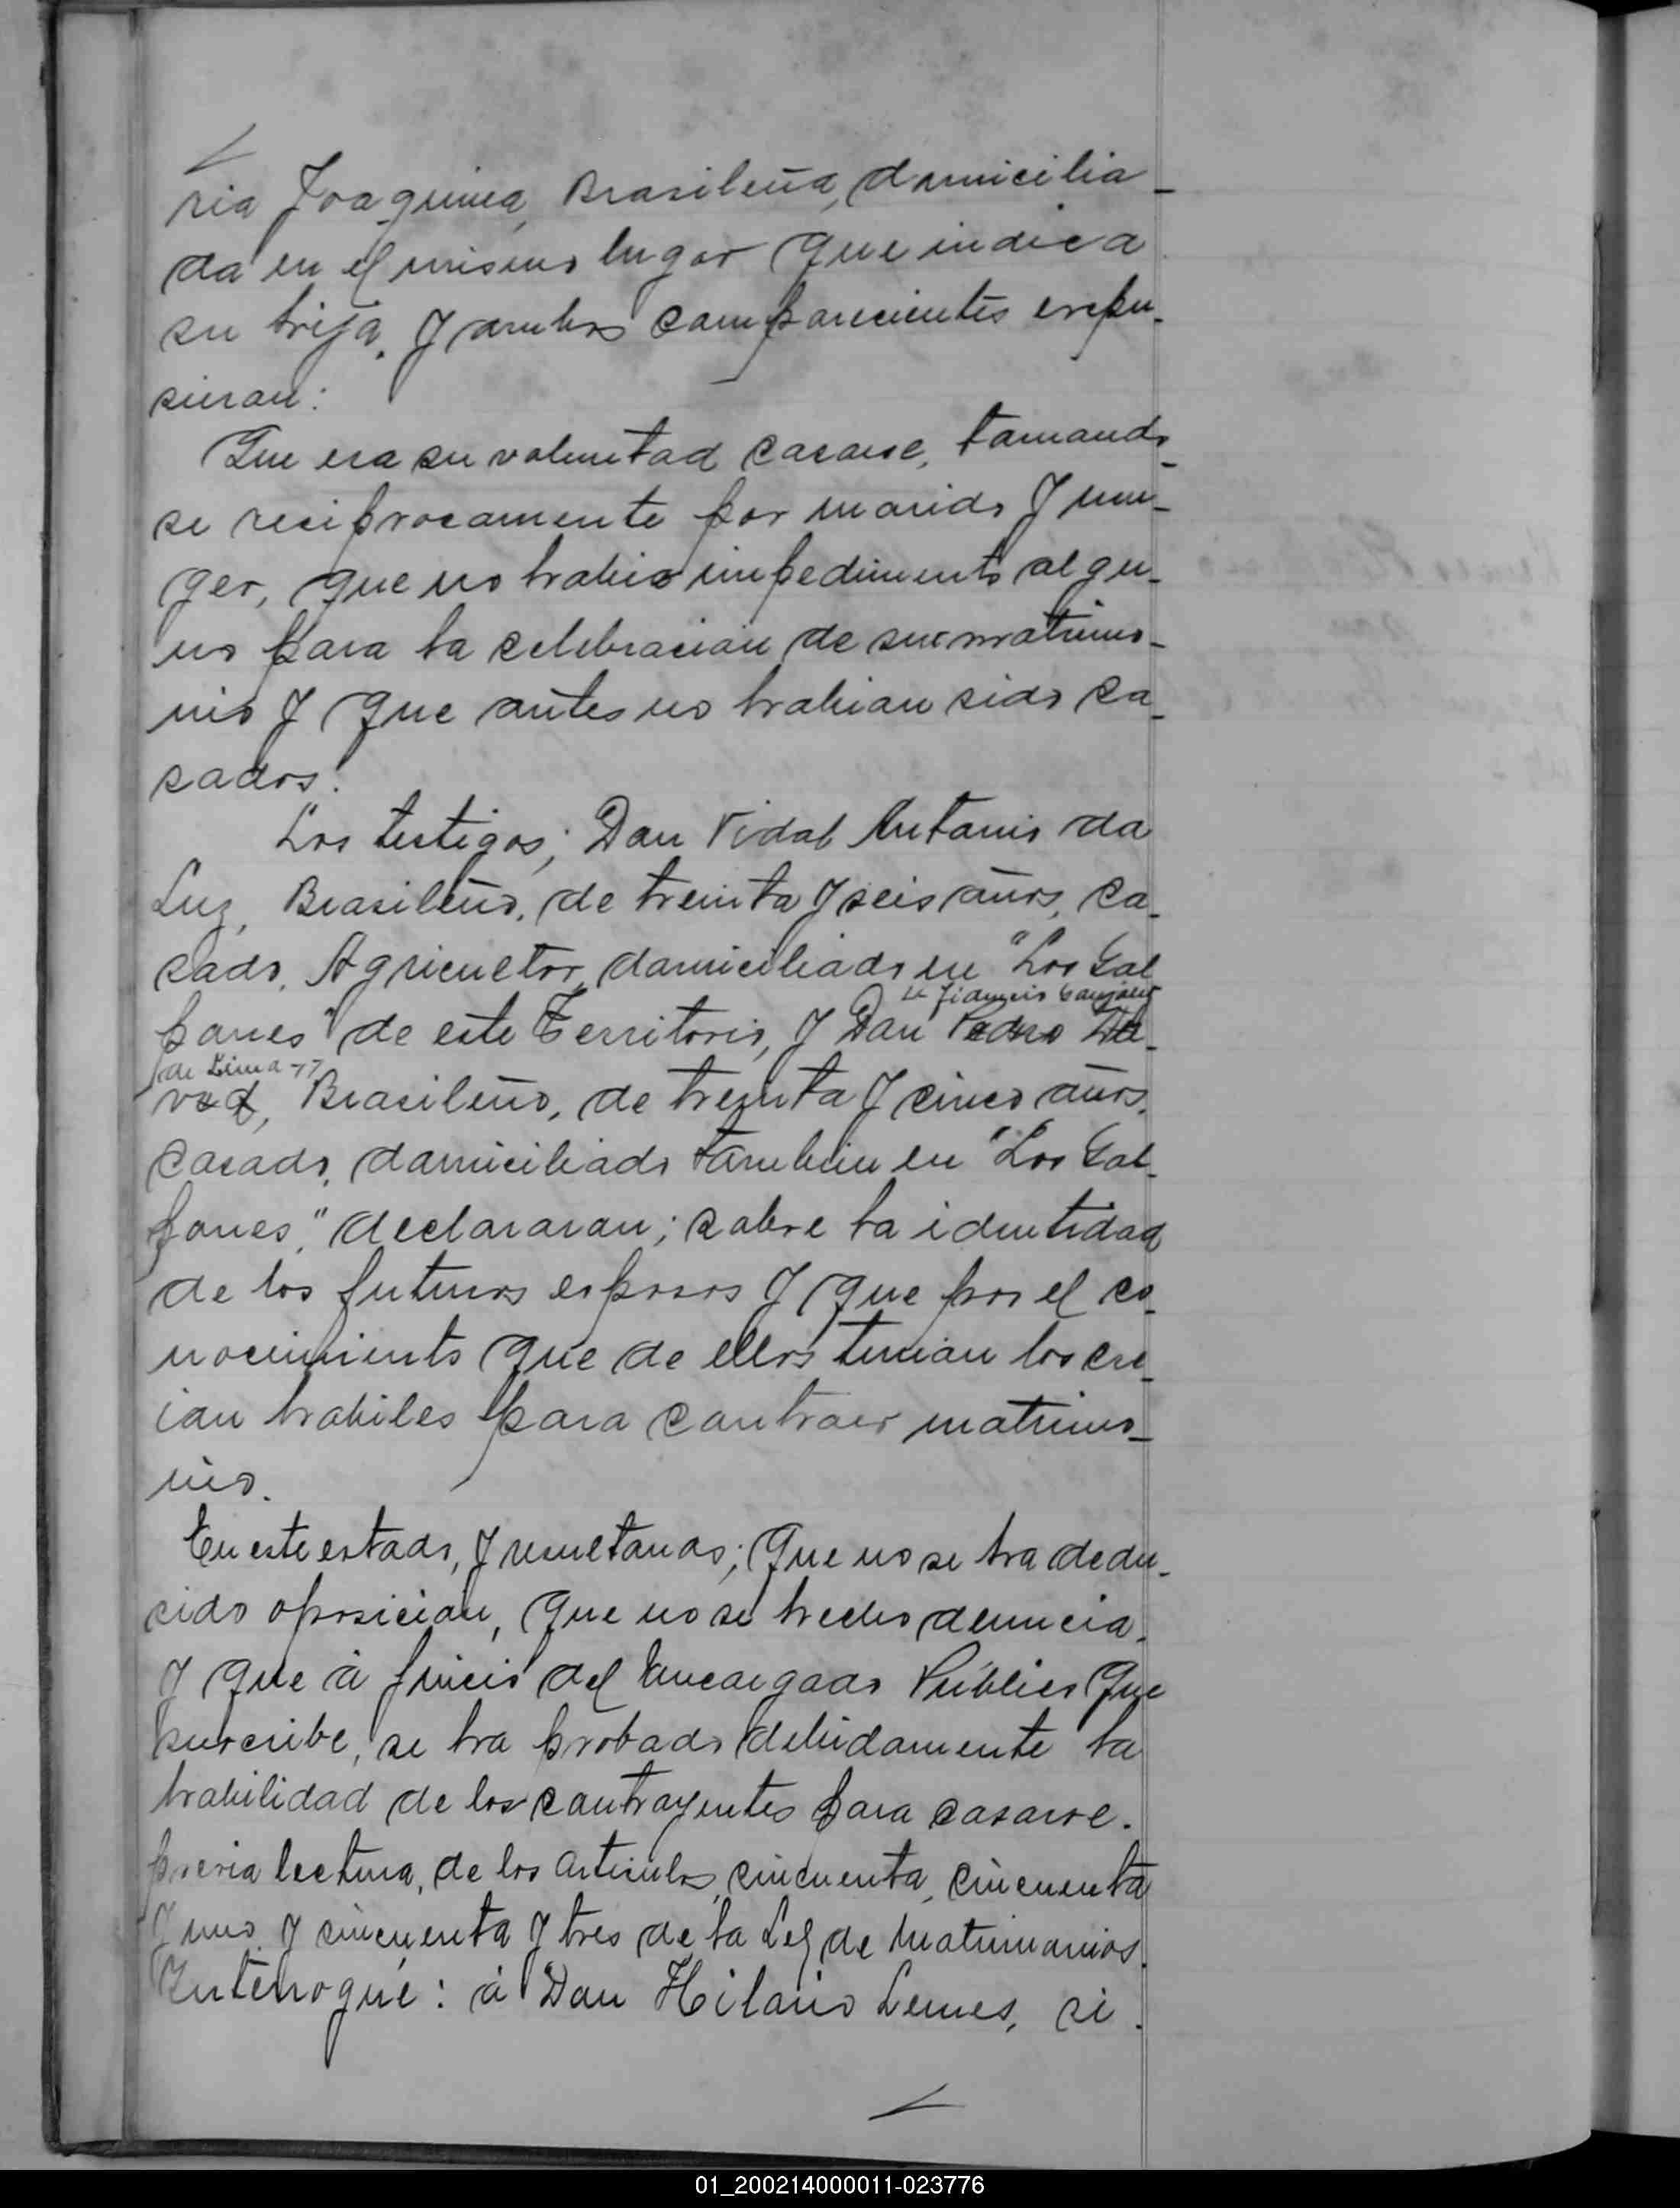 ria Joaquina, Brasileña, domicilia-
da en el mismo lugar que indica
su hija. Y ambos comparecientes expu-
sieron:
Que era su voluntad casarse, tomando-
se reciprocamente por marido y mu-
ger, que no habia impedimento algu-
no para la celebracion de su matrimo-
nio y que antes no habian sido ca-
sados.
Los testigos; Don Vidal Antonio da
Luz, Brasileño, de treinta y seis años, ca-
sado, Agricultor, domiciliado en "Los Gal
pones" de este Territorio, y Don Pedro
de Lima
Brasileño, de treinta y cinco años,
casado, domiciliado tambien en "Los Gal-
pones," declararon; sobre la identidad
de los futuros esposos y que por el co-
nocimiento que de ellos tenian los cre-
ian habiles para contraer matrimo-
nio.
En este estado, y resultando; Que no se ha dedu-
cido oposicion, que no se hecho denuncia,
y que à juicio del Encargado Público que
suscribe, se ha probado debidamente la
habilidad de los contrayentes para casarse.
previa lectura, de los articulos, cincuenta, cincuenta
y uno y cincuenta y tres de la Ley de Matrimonios.
Interrogué: à Don Hilario Lemes, si
01_200214000011-023776